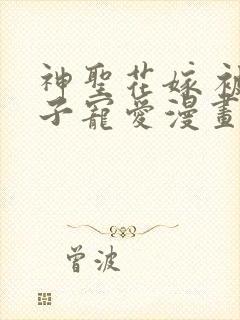 神聖花嫁 被
子寵愛漫畫
曾波